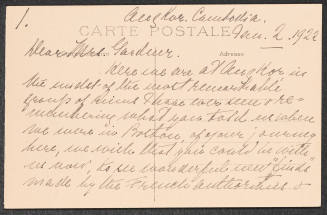 1.
Angkor. Cambodia.
CARTE POSTALE
Jan. 2. 1922
Dear Mrs. Gardner.
Adresse
Here we are at Angkor in
the midst of the most remarkable
group of ruins I have ever seen & re-
membering what you told us when
we were in Boston of your journey
here, we wish that you could be with
us now, to see wonderful new "finds"
made by the French authorities &